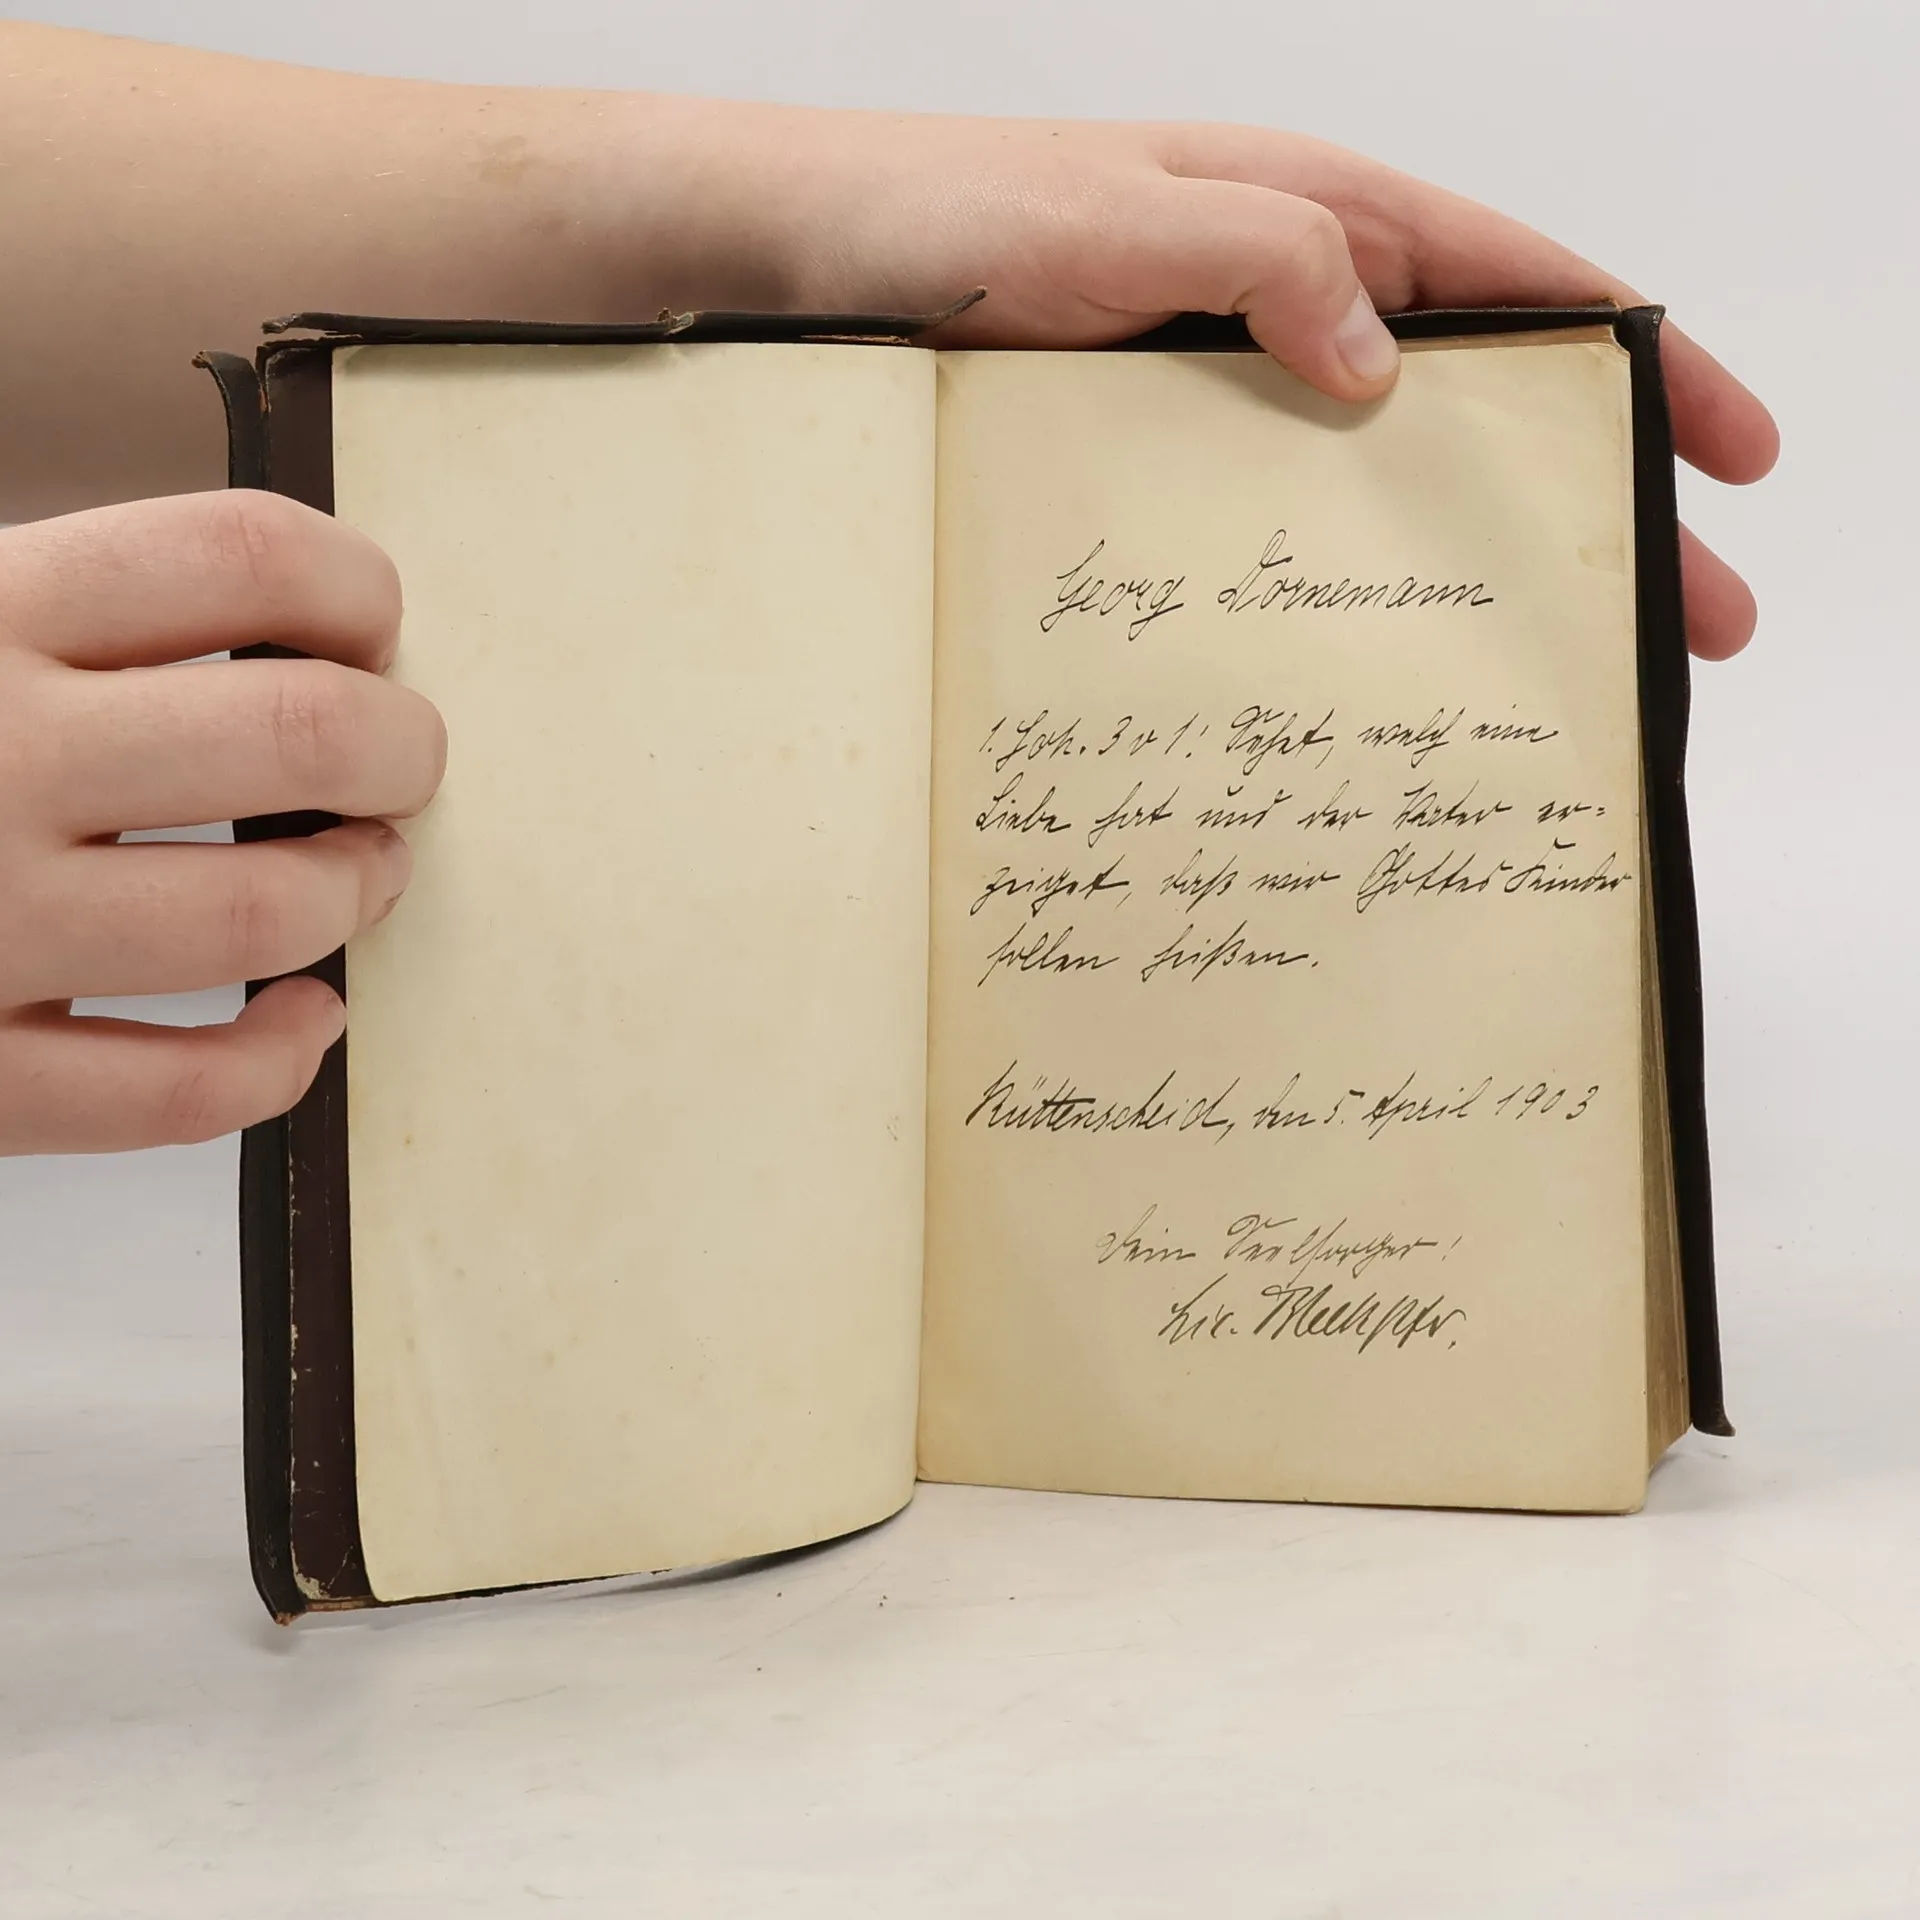 Georg Dornemann
1. Joh. 3 v 1: Sehet, welch eine
Liebe hat uns der Vater er=
zeiget, daß wir Gottes Kinder
sollen heißen.
Rüttenscheid, den 5. April 1903
Dein Seelsorger:
Lic.